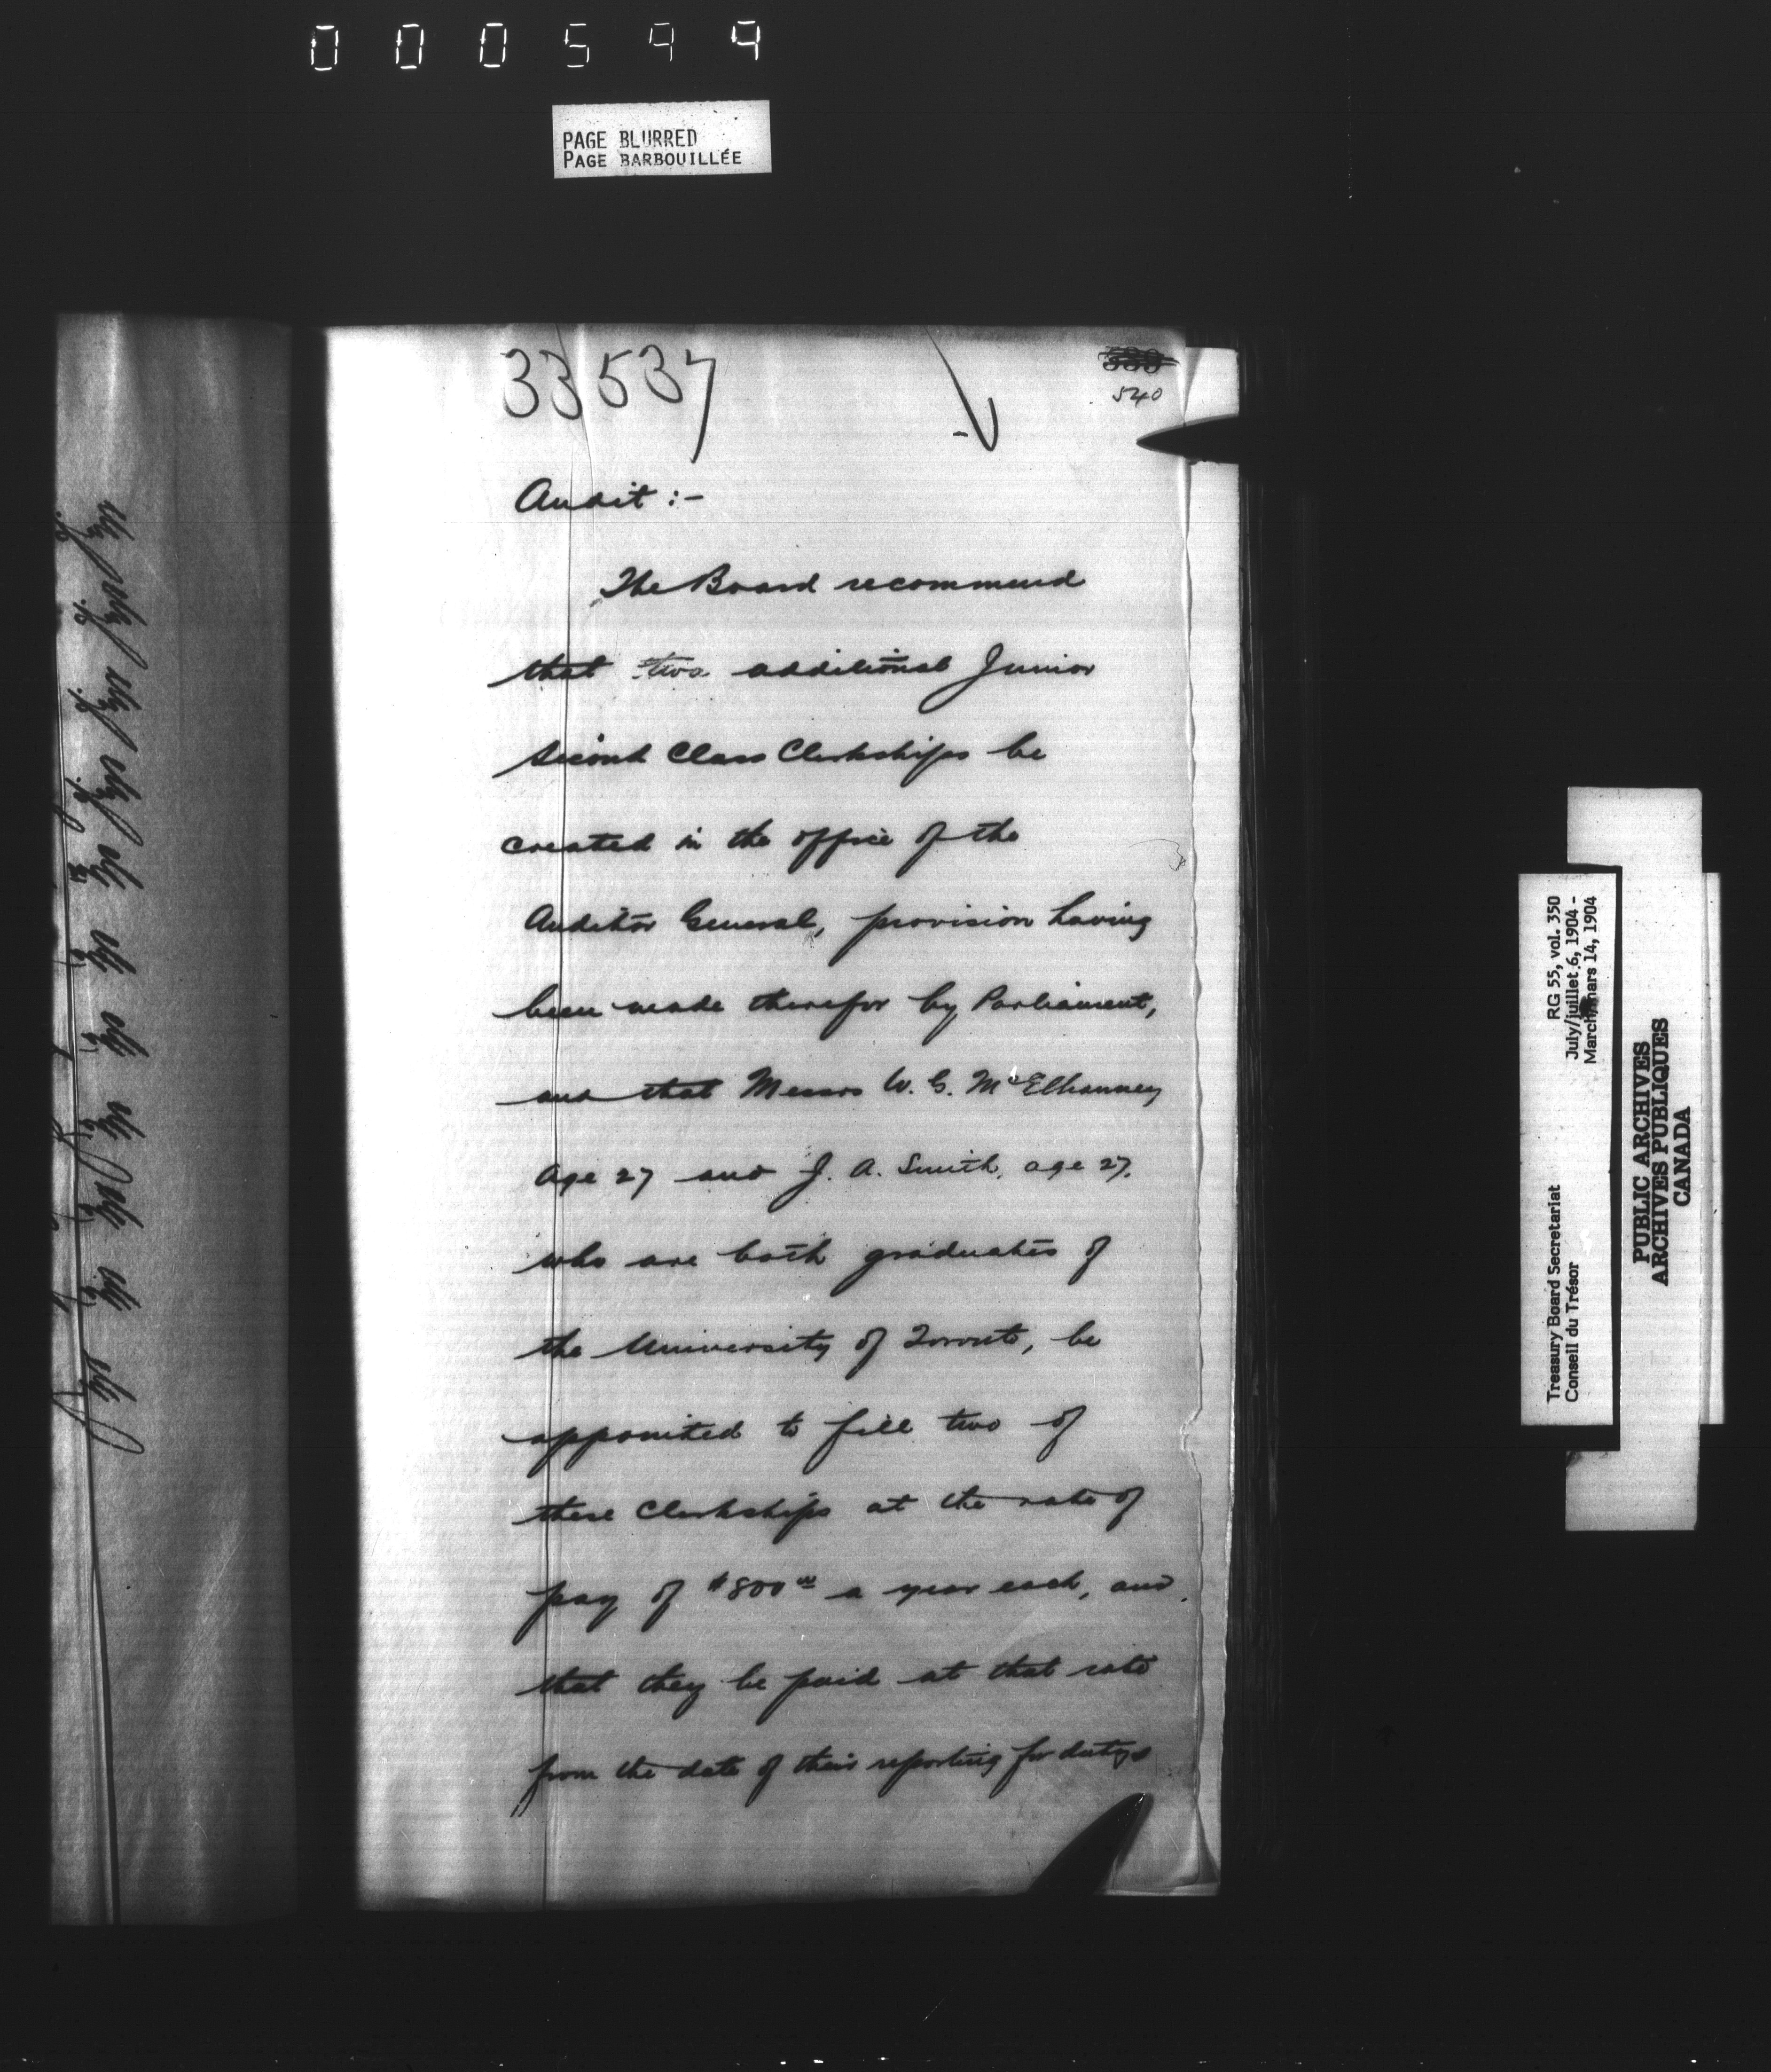 000599
PAGE BLURRED
PAGE BARBOUILLÉE
33537
540
Audit :-
The Board recommend
that two additional Junior
Second Class Clerkships be
created in the office of the
Auditor General, provision having
been made therefor by Parliament,
and that Messrs W. G. McElhanney
age 27 and J. A. Smith, age 27,
who are both graduates of
the University of Toronto, be
appointed to fill two of
these Clerkships at the rate of
pay of $800 00 a year each, and
that they be paid at that rate
from the date of their reporting for duty
Treasury Board Secretariat RG 55, vol. 350
Conseil du Trésor July/juillet 6, 1904 -
March/mars 14, 1904
PUBLIC ARCHIVES
ARCHIVES PUBLIQUES
CANADA